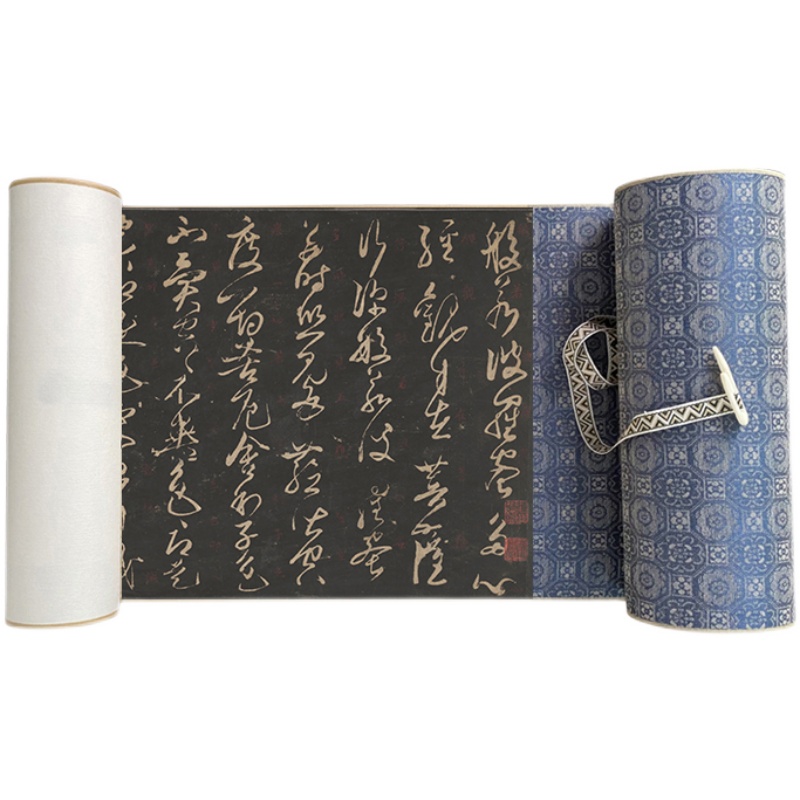 般若波羅蜜多心
經觀自在菩薩
行深般若波羅蜜
多時照見五蘊皆空
度一切苦厄舍利子色
不異空〻不異色〻即是